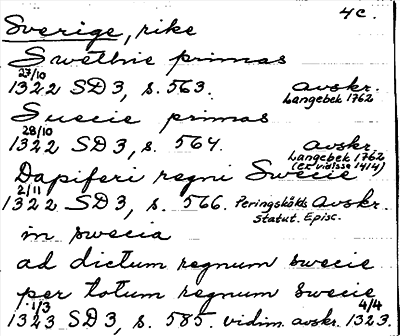 4c.
Sverige, rike
Swethie primas
27/10
1322 SD 3, s. 563. avskr.
Langebek 1762
Suecie primas
28/10
1322 SD 3, s. 564. avskr.
Langebek 1762
(ex vidisse 1414)
Dapiferi regni Swecie
2/11
1322 SD 3, s. 566. Peringskölds avskr.
Statut. Episc.
in swecia
ad dictum regnum swecie
per totum regnum swecie
1/3 4/4
1323 SD 3, s. 585. vidim. avskr. 1323.